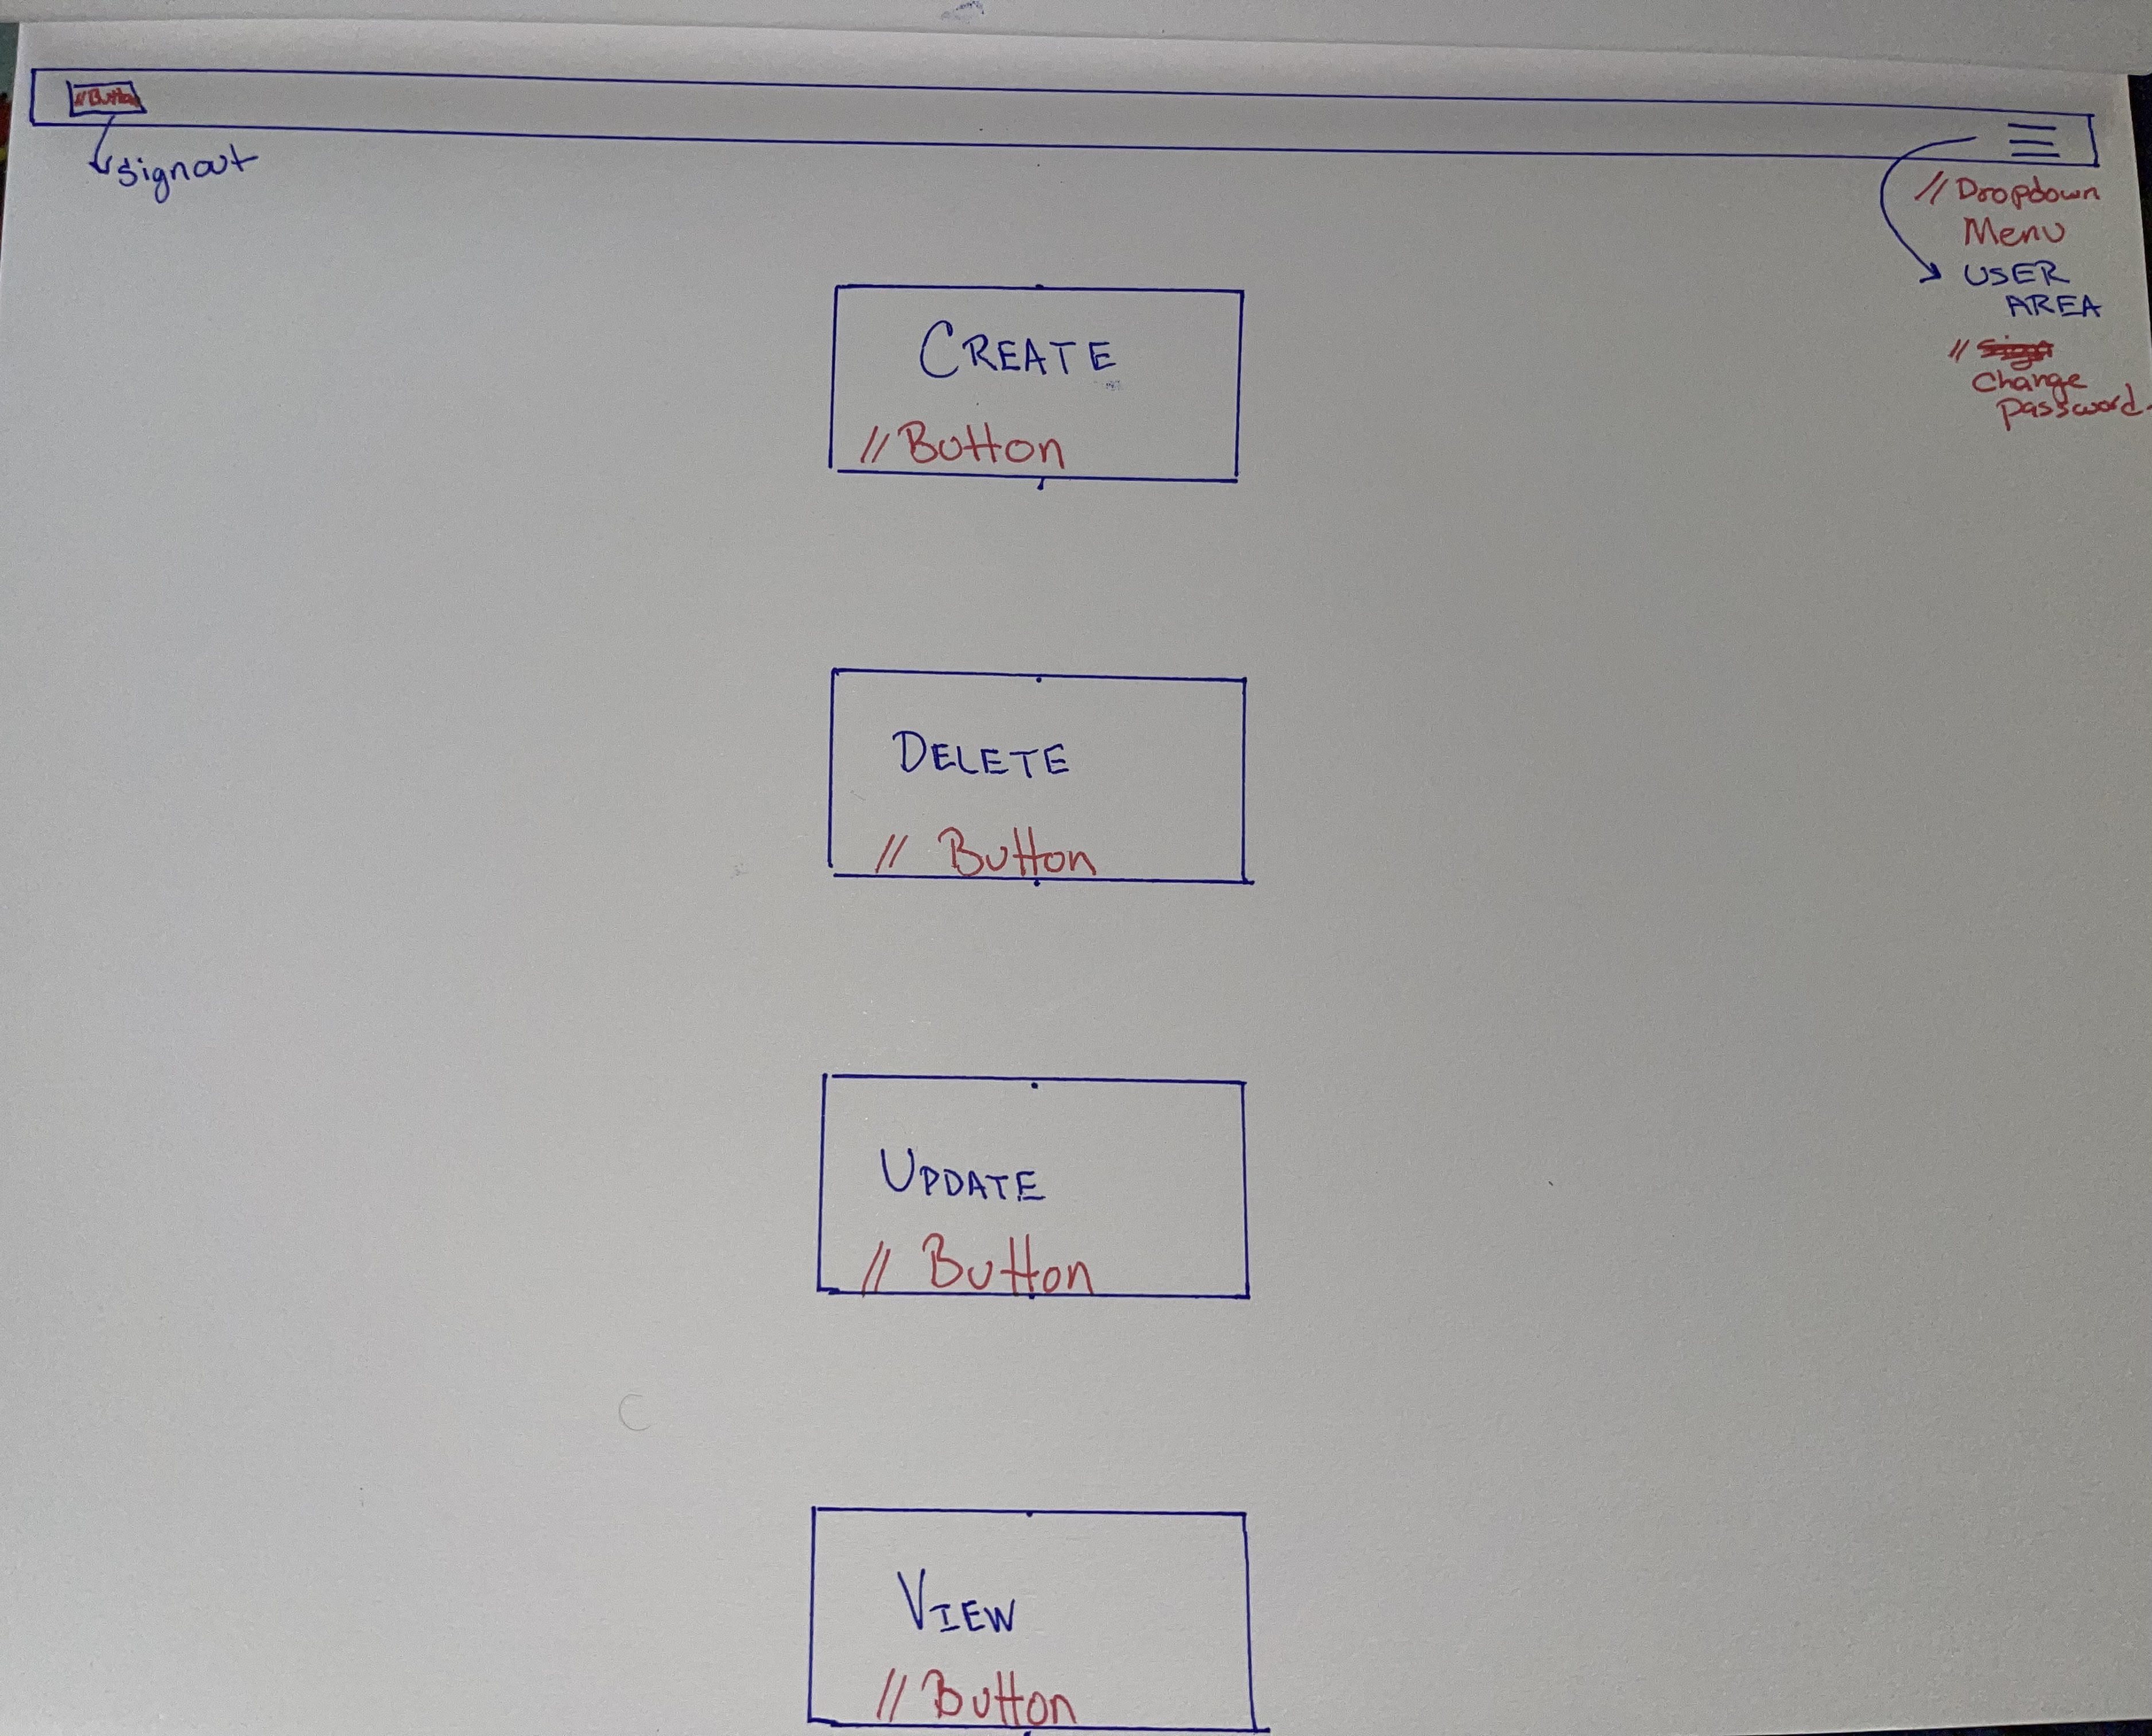 //Button
signout
//Dropdown
Menu
USER
AREA
//
Change
password.
CREATE
//Button
DELETE
// Button
UPDATE
// Button
VIEW
//Button